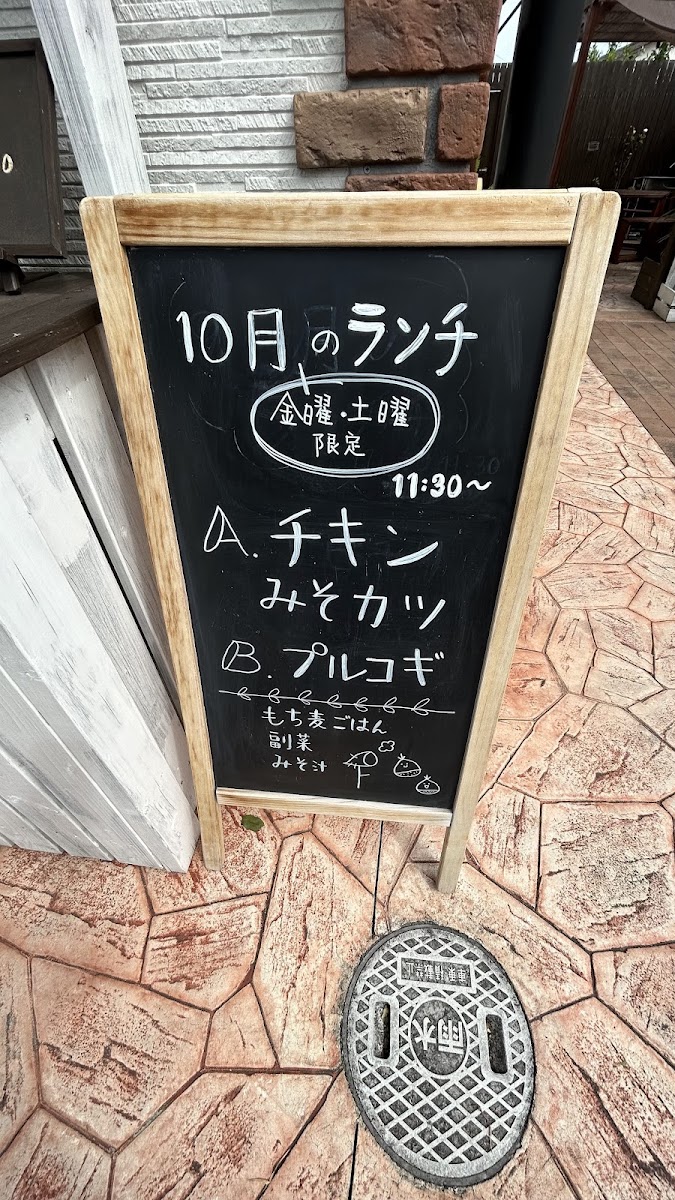 10月のランチ
金曜・土曜
限定
11:30～
A. チキン
みそカツ
B. プルコギ
もち麦ごはん
副菜
みそ汁
雨水